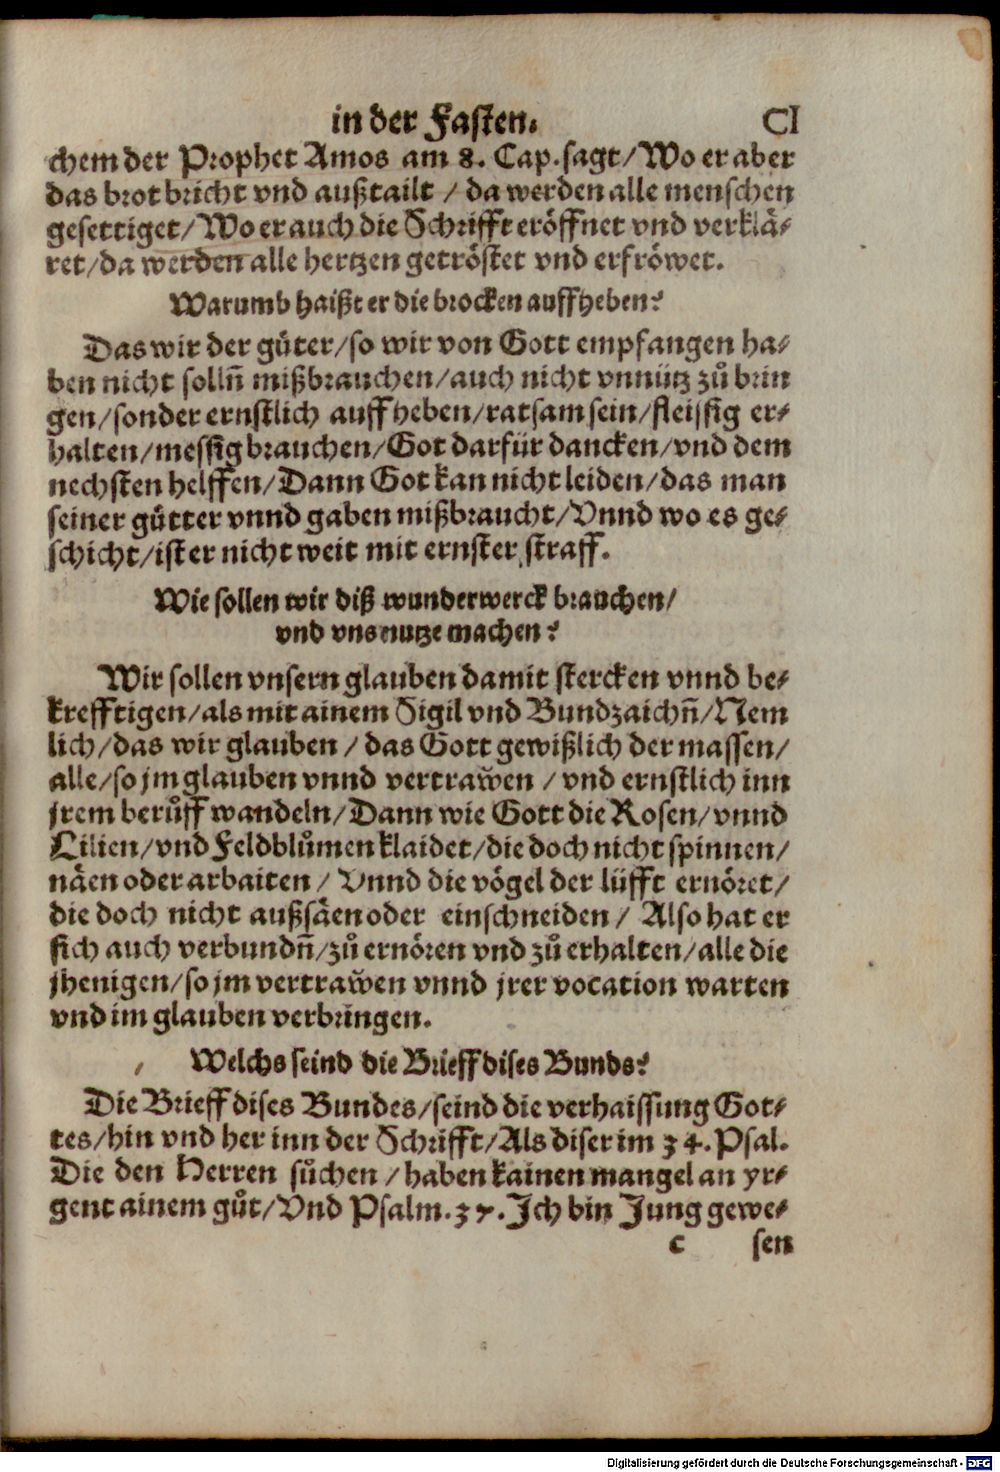 in der Fasten. CI
chem der Prophet Amos am 8. Cap. sagt/ Wo er aber
das brot bricht vnd außtailt / da werden alle menschen
gesettiget/ Wo er auch die Schrifft eröffnet vnd verklä-
ret/ da werden alle hertzen getröstet vnd erfröwet.
Warumb haißt er die brocken auffheben?
Das wir der gůter/ so wir von Gott empfangen ha-
ben nicht solln̄ mißbrauchen/ auch nicht vnnütz zů brin
gen/ sonder ernstlich auffheben/ ratsam sein/ fleissig er-
halten/ messig brauchen/ Got darfür dancken/ vnd dem
nechsten helffen/ Dann Got kan nicht leiden/ das man
seiner gůtter vnnd gaben mißbraucht/ Vnnd wo es ge-
schicht/ ist er nicht weit mit ernster straff.
Wie sollen wir diß wunderwerck brauchen/
vnd vns nutze machen?
Wir sollen vnsern glauben damit stercken vnnd be-
krefftigen/ als mit ainem Sigil vnd Bundzaichn̄/ Nem
lich/ das wir glauben / das Gott gewißlich der massen/
alle/ so jm glauben vnnd vertraw̆en / vnd ernstlich inn
jrem berůff wandeln/ Dann wie Gott die Rosen/ vnnd
Lilien/ vnd Feldblůmen klaidet/ die doch nicht spinnen/
näen oder arbaiten / Vnnd die vögel der lüfft ernöret/
die doch nicht außsäen oder einschneiden / Also hat er
sich auch verbundn̄/ zů ernören vnd zů erhalten/ alle die
jhenigen/ so jm vertraw̆en vnnd jrer vocation warten
vnd im glauben verbringen.
Welchs seind die Brieff dises Bunds?
Die Brieff dises Bundes/ seind die verhaissung Got-
tes/ hin vnd her inn der Schrifft/ Als diser im 34. Psal.
Die den Herren sůchen / haben kainen mangel an yr-
gent ainem gůt/ Vnd Psalm. 37. Ich bin Jung gewe-
c sen
Digitalisierung gefördert durch die Deutsche Forschungsgemeinschaft - DFG